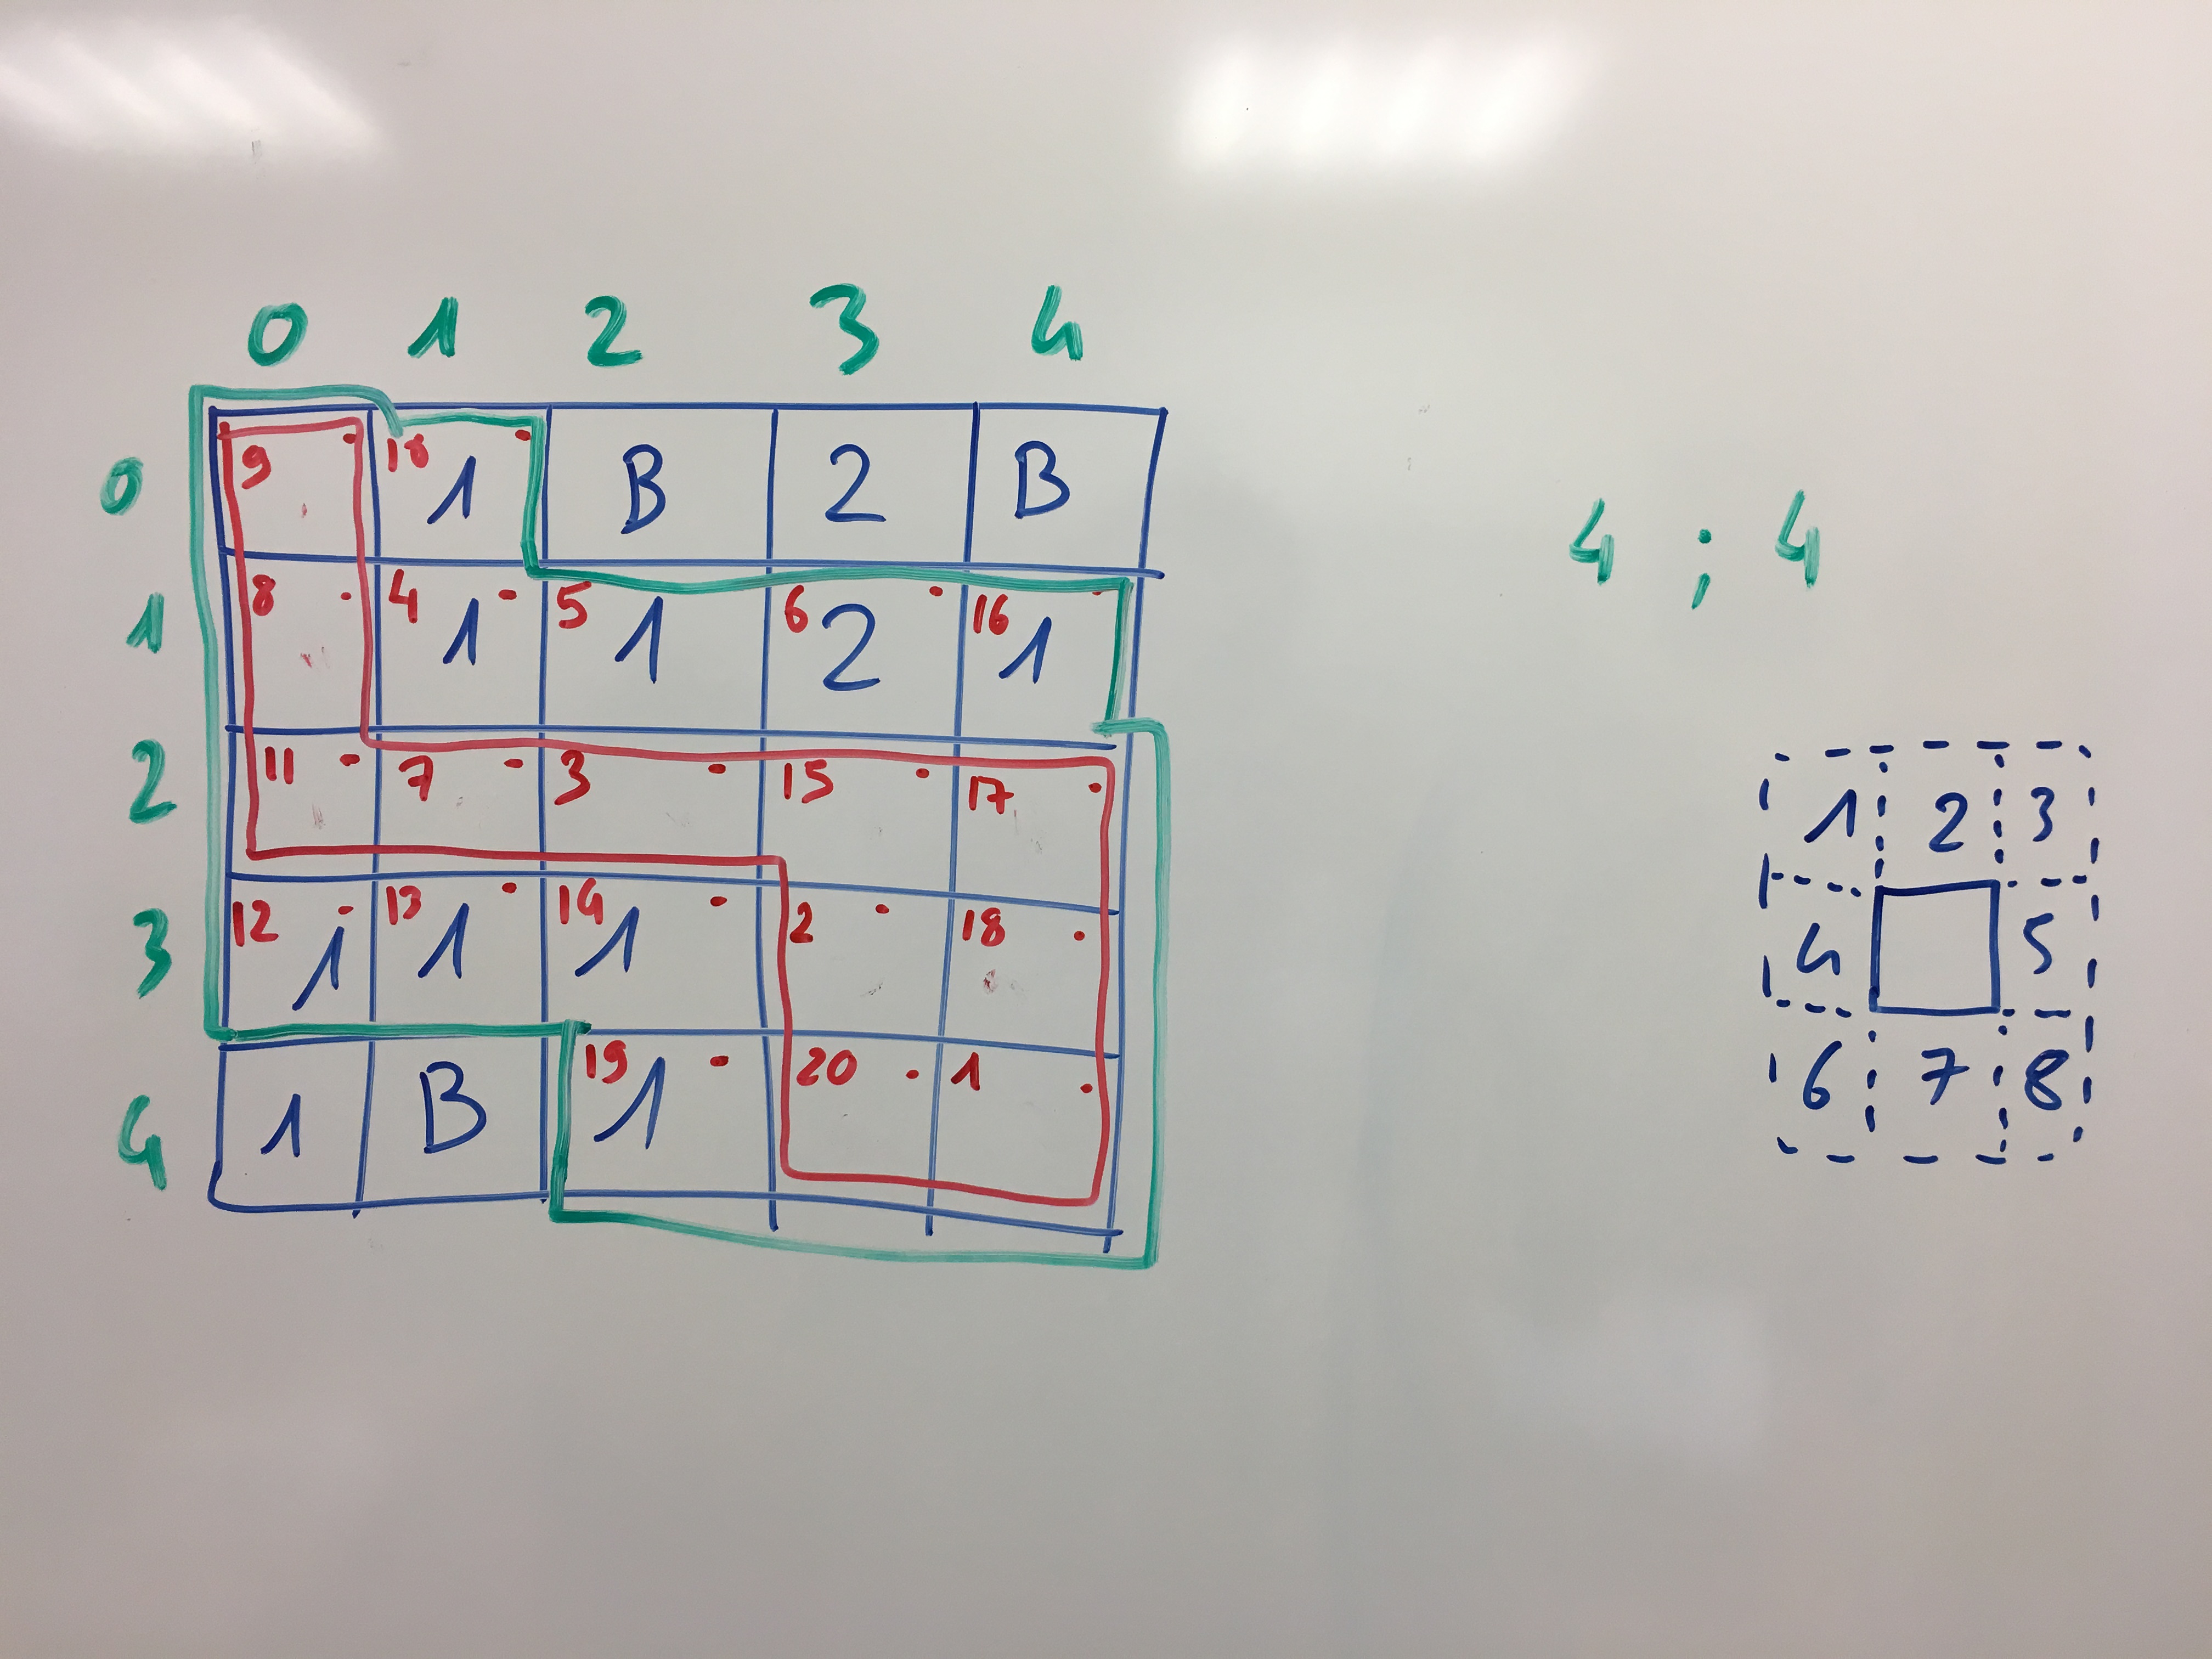 0 1 2 3 4
0 9 10 1 B 2 B
4 ; 4
1 8 4 1 5 1 6 2 16 1
2 11 7 3 15 17
3 12 1 13 1 14 1 2 18
4 1 B 19 1 20 1
1 2 3
4 5
6 7 8